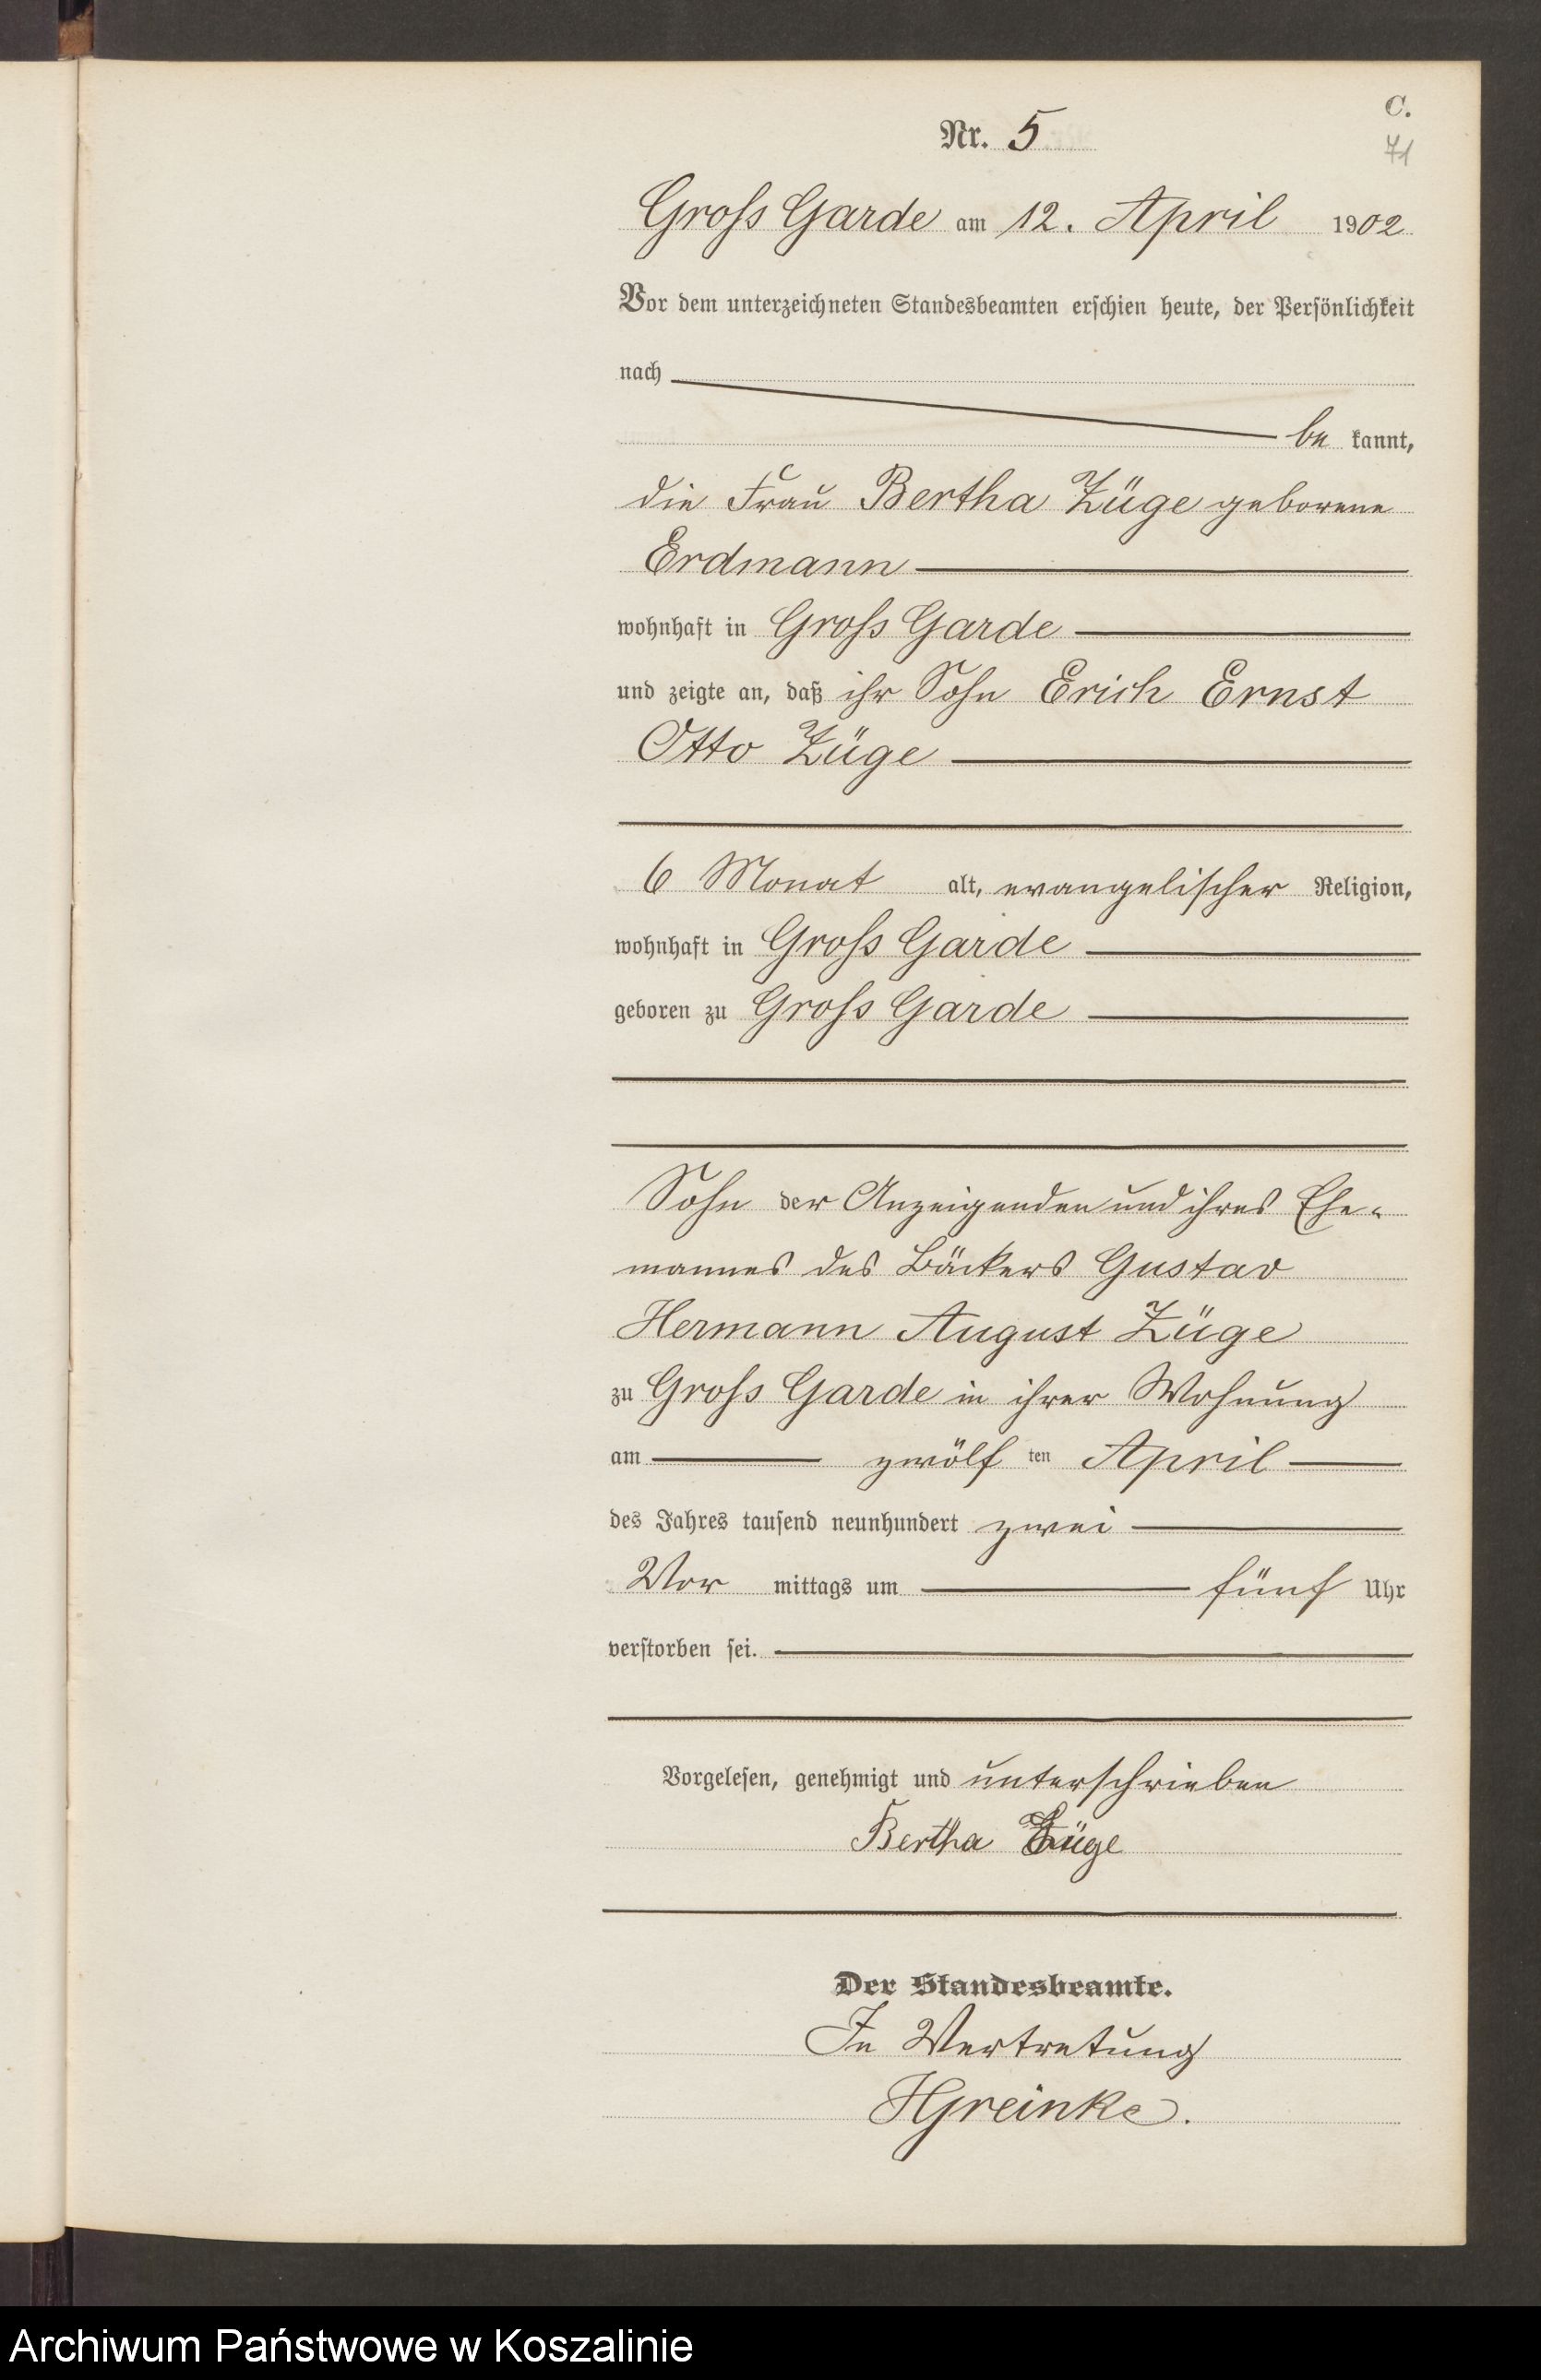 C.
Nr. 5
71
Gross Garde am 12. April 1902
Vor dem unterzeichneten Standesbeamten erschien heute, der Persönlichkeit
nach
be kannt,
die Frau Bertha Züge geborene
Erdmann
wohnhaft in Gross Garde
und zeigte an, daß ihr Sohn Erich Ernst
Otto Züge
6 Monat alt, evangelischer Religion,
wohnhaft in Gross Garde
geboren zu Gross Garde
Sohn der Anzeigenden und ihres Ehe-
mannes des Bäckers Gustav
Hermann August Züge
zu Gross Garde in ihrer Wohnung
am zwölf ten April
des Jahres tausend neunhundert zwei
Vor mittags um fünf Uhr
verstorben sei.
Vorgelesen, genehmigt und unterschrieben
Bertha Züge
Der Standesbeamte.
In Vertretung
HGreinke.
Archiwum Państwowe w Koszalinie